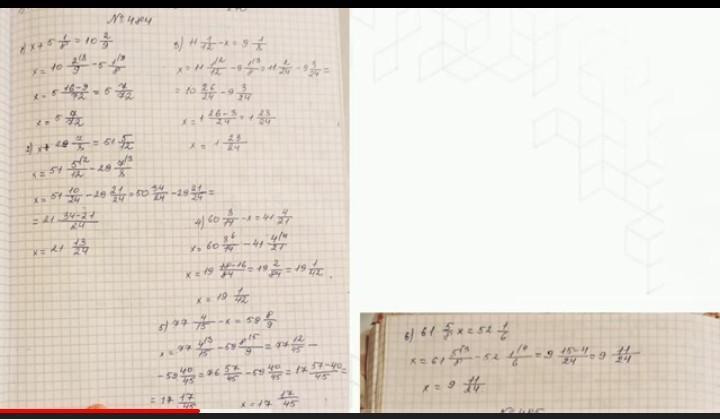 № 484
1) x + 5 1/8 = 10 2/9
x = 10 2/9 - 5 1/8
x = 5 16-9/72 = 5 7/72
x = 5 7/72
2) x + 29 7/8 = 51 5/12
x = 51 5/12 - 29 7/8
x = 51 10/24 - 29 21/24 = 50 34/24 - 29 21/24 =
= 21 34-21/24
x = 21 13/24
3) 11 1/12 - x = 9 1/8
x = 11 1/12 - 9 1/8 = 11 2/24 - 9 3/24 =
= 10 26/24 - 9 3/24
x = 1 26-3/24 = 1 23/24
x = 1 23/24
4) 60 3/14 - x = 41 4/21
x = 60 3/14 - 41 4/21
x = 19 18-16/84 = 19 2/84 = 19 1/42
x = 19 1/42
5) 77 4/15 - x = 59 8/9
x = 77 4/15 - 59 8/9 = 77 12/45 -
- 59 40/45 = 76 57/45 - 59 40/45 = 17 57-40/45 =
= 17 17/45 x = 17 17/45
6) 61 5/8 x = 52 1/6
x = 61 5/8 - 52 1/6 = 9 15-4/24 = 9 11/24
x = 9 11/24